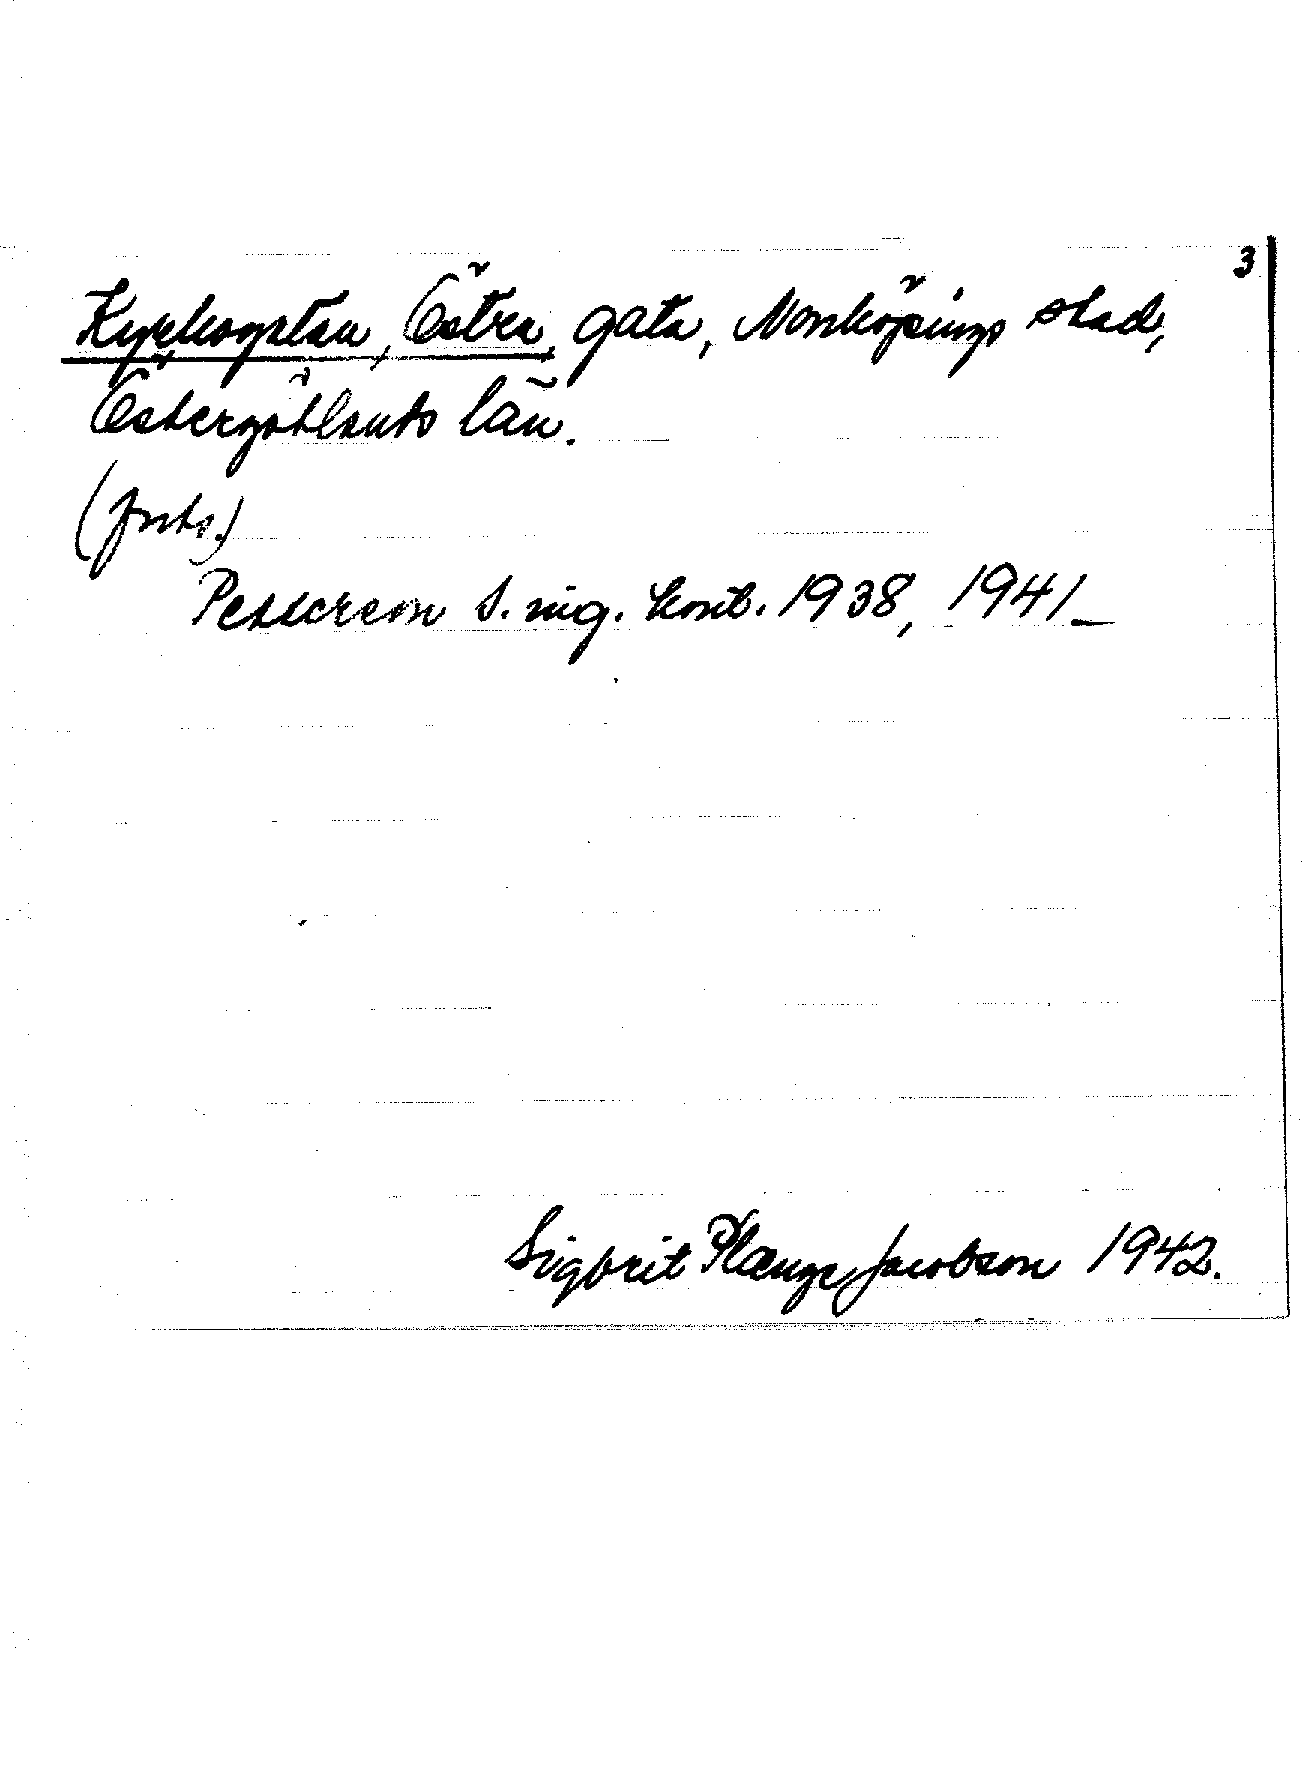 3
Kyrkogatan, Östra, gata, Norrköpings stad,
Östergötlands län.
(forts.)
Pettersson S. ing. kont. 1938, 1941_
Sigbrit Plænge Jacobson 1942.